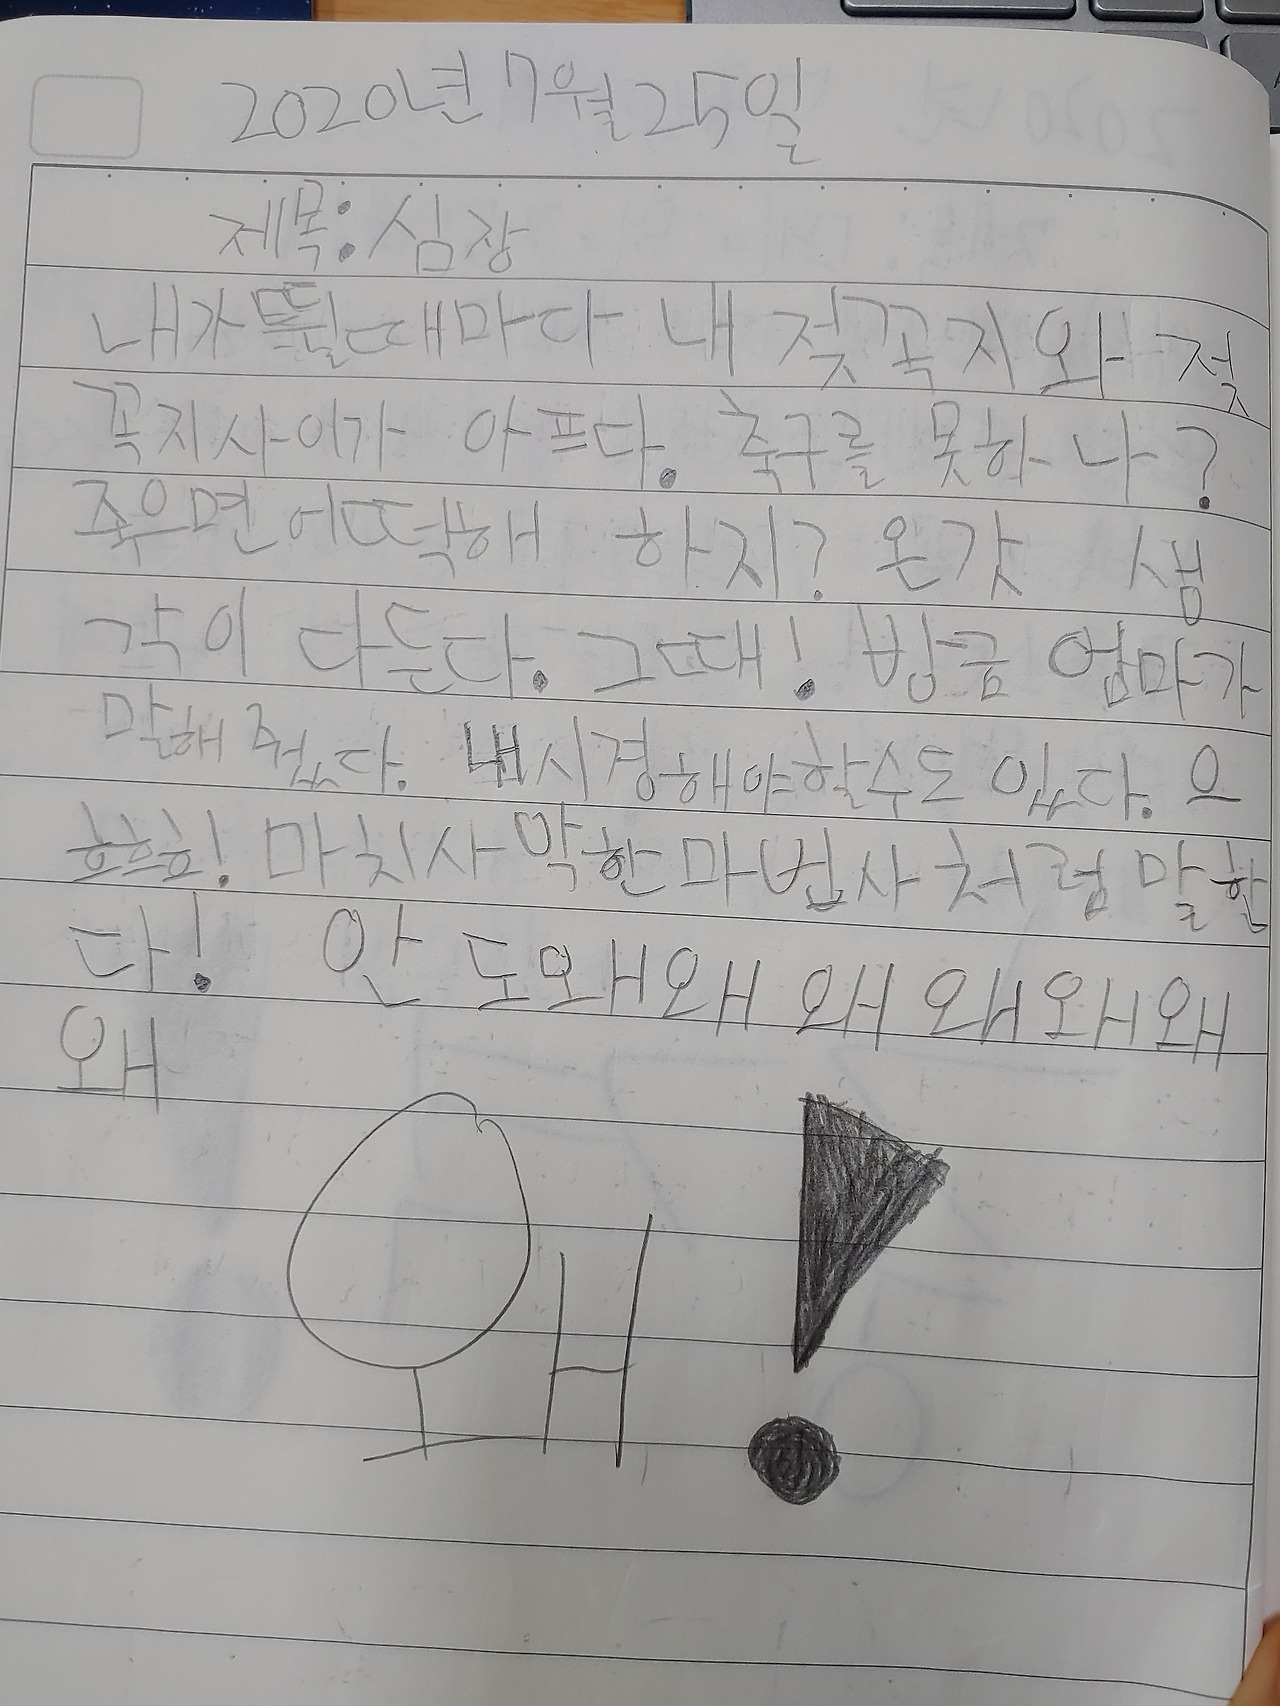 2020년 7월 25일
제목: 심장
내가 뛸때마다 내 젖꼭지와 젖
꼭지사이가 아프다. 축구를 못하나?
죽우면 어떡해 하지? 온갖 생
각이 다든다. 그때! 방금 엄마가
말해 줬다. 내시경해야할수도 있다. 으
흐흐흐! 마치사 악한 마법사처럼 말한
다! 안 도ㅐ왜 왜 왜 왜 왜
왜
왜!